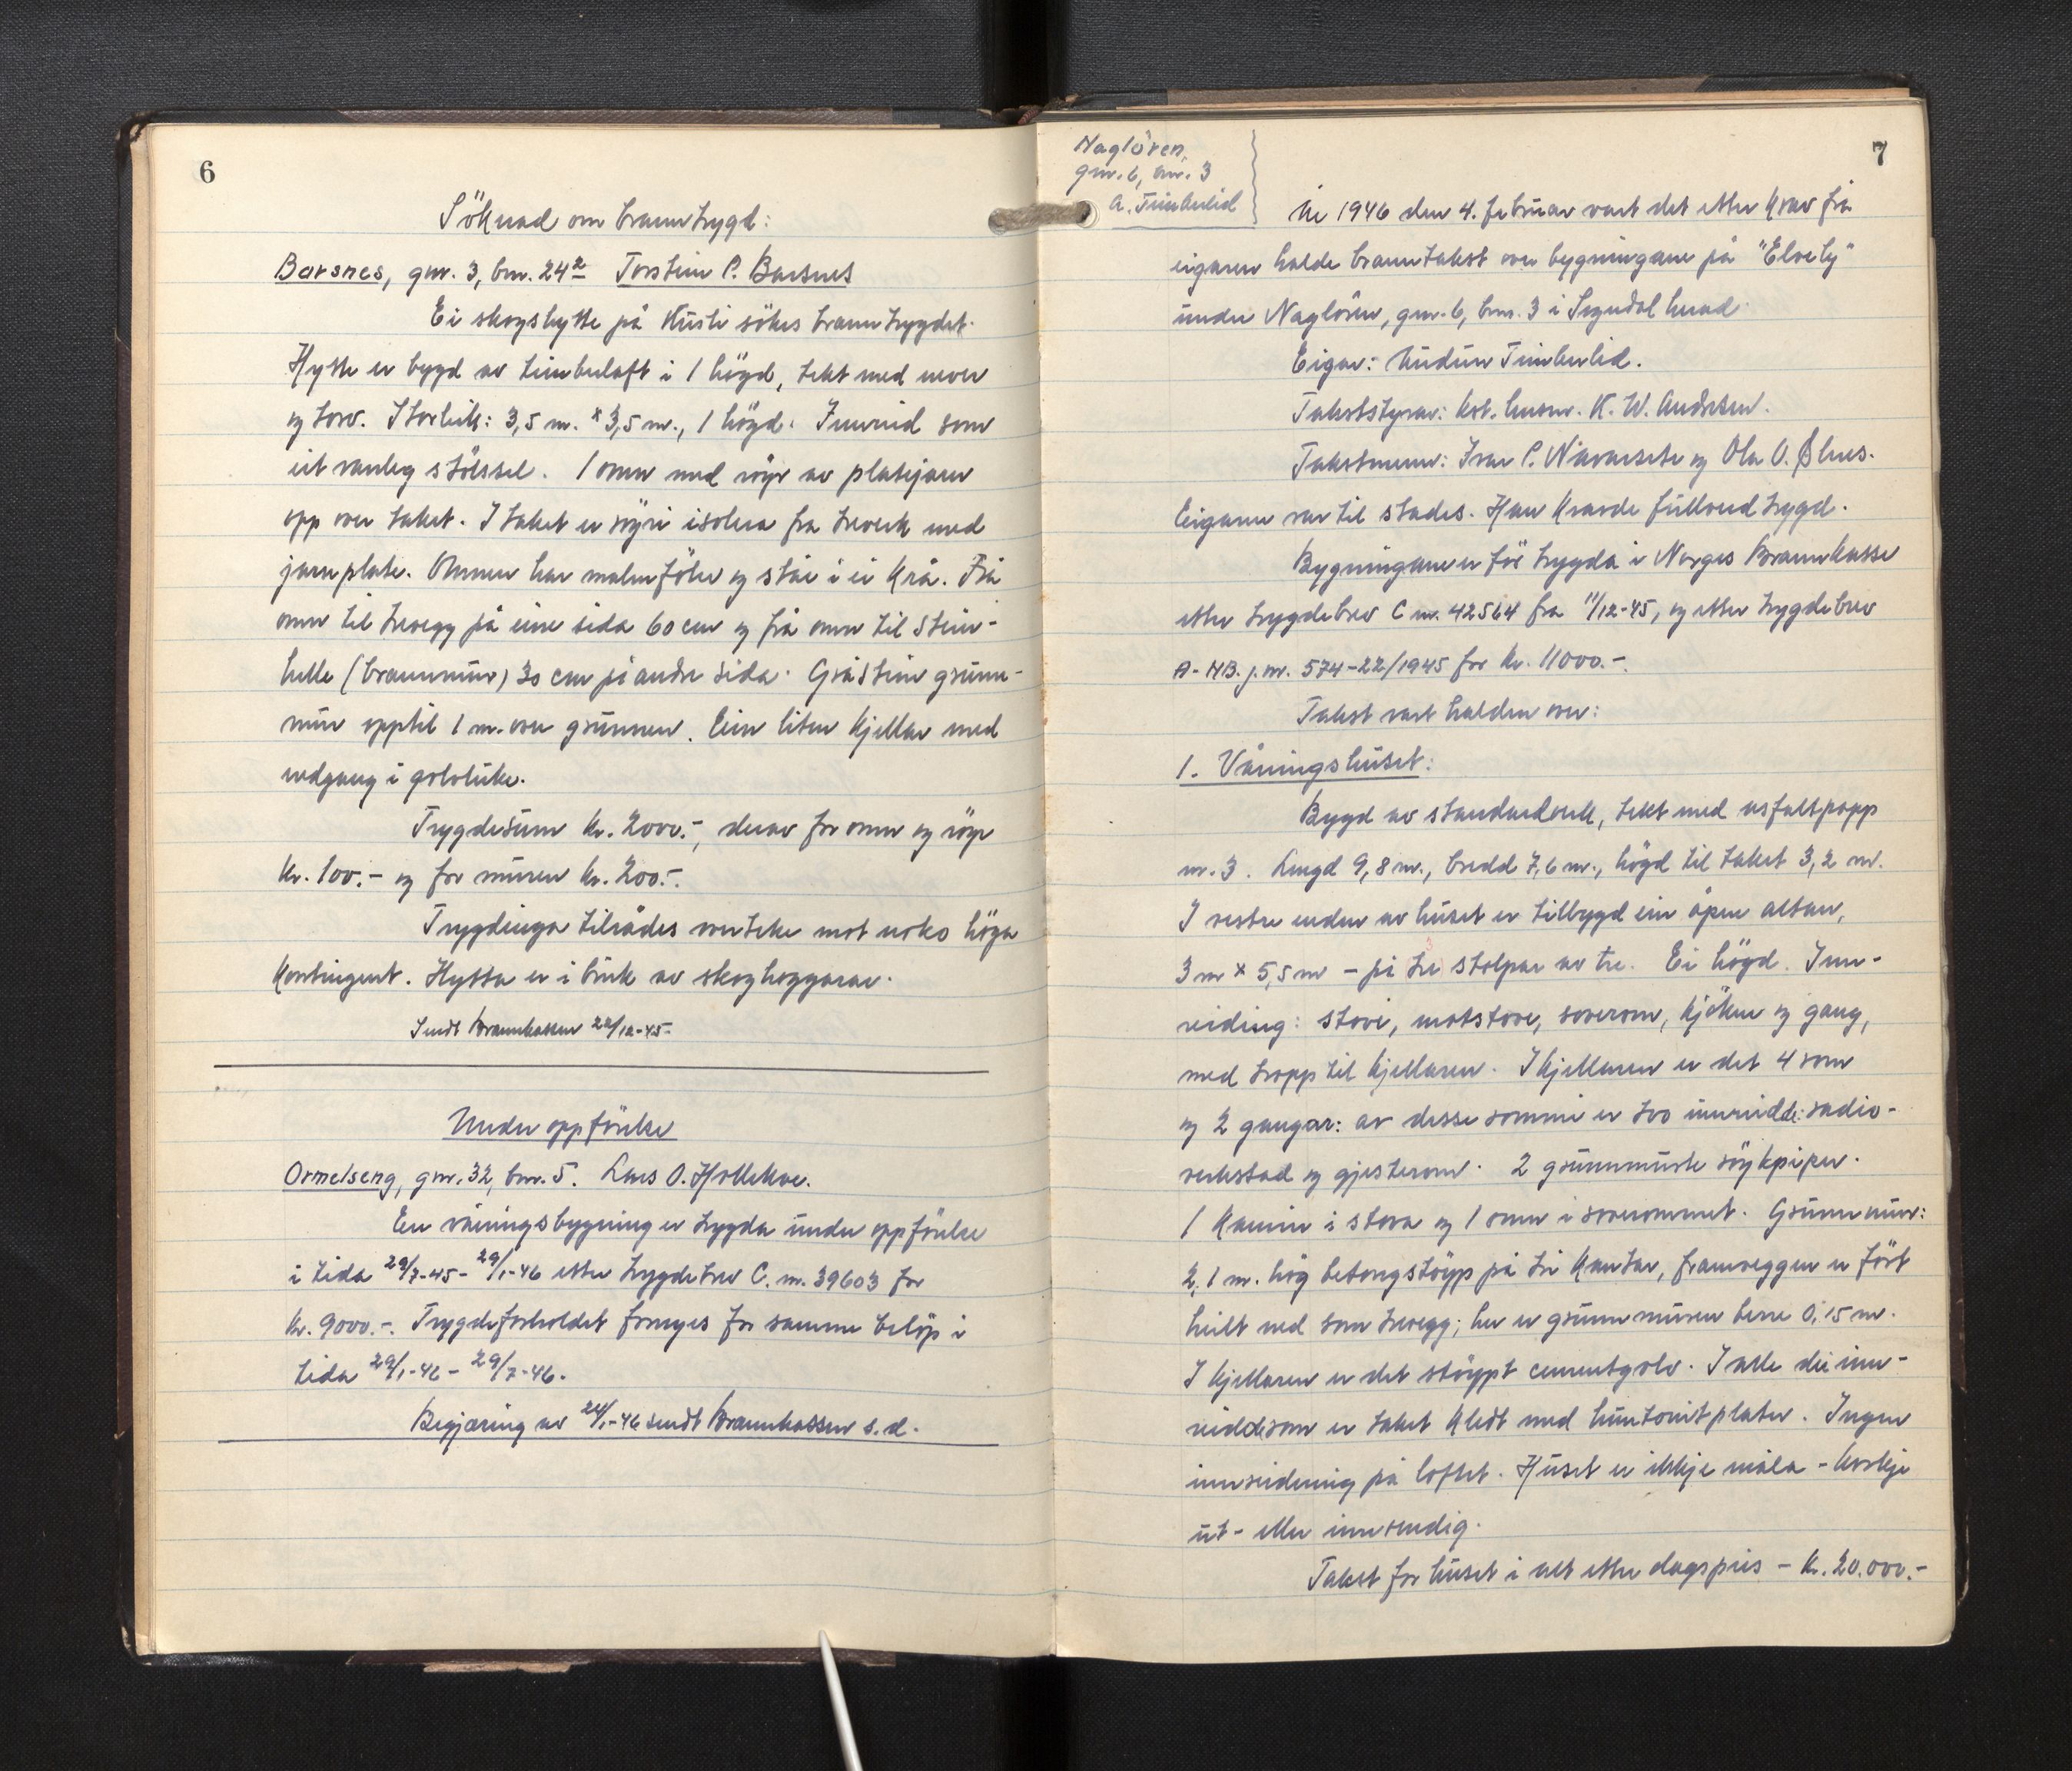 6
Söknad om branntrygd:
Barsnes, gnr. 3, bnr. 24² Torstein P. Barsnes
Ei skogshytte på Kusli sökes branntrygdet.
Hytte er bygd av timberlaft i 1 högd, tekt med never
og torv. Storleik: 3,5 m. x 3,5 m., 1 högd. Innreid som
eit vanleg stölssel. 1 omn med röyr av platejarn
opp over taket. I taket er röyri isolera fra treverk med
jarnplate. Omnen har malmföter og står i ei krå. Frå
omn til trevegg på eine sida 60 cm og frå omn til stein-
helle (brannmur) 30 cm på andre sida. Gråstein grunn-
mur opptil 1 m. over grunnen. Ein liten kjellar med
nedgang i golvluke.
Trygdesum kr. 2000.-, derav for omn og röyr
kr. 100.- og for muren kr. 200.-.
Trygdinga tilrådes overteke mot noko höga
kontingent. Hytta er i bruk av skoghoggarar.
Sendt Brannkassen 22/12-45.
Under oppförelse
Ormelseng, gnr. 32, bnr. 5. Lars O. Hollekve.
En våningsbygning er trygda under oppförelse
i tida 29/7-45 - 29/1-46 etter trygdebrev C. nr. 39603 for
kr. 9000.-. Trygdeforholdet fornyes for samme belöp i
tida 29/1-46 - 29/7-46.
Begjæring av 24/1-46 sendt Brannkassen s.d.
7
Naglören,
gnr. 6, bnr. 3
A. Timberlid
År 1946 den 4. februar vart det etter krav frå
eigaren halde branntakst over bygningane på "Elvely"
under Naglören, gnr. 6, bnr. 3 i Sogndal herad.
Eigar: Audun Timberlid.
Takststyrar: kst. lensm. K. W. Andresen.
Takstmenn: Ivar P. Navarsete og Ola O. Ølnes.
Eigaren var til stades. Han kravde fullverd trygd.
Bygningane er för trygda i Norges Brannkasse
etter trygdebrev C nr. 42564 fra 11/12-45, og etter trygdebrev
A-NB. j.nr. 574-22/1945 for kr. 11000.-.
Takst vart halden over:
1. Våningshuset:
Bygd av standardverk, tekt med asfaltpapp
nr. 3. Lengd 9,8 m., bredd 7,6 m., högd til taket 3,2 m.
I vestre enden av huset er tilbygd ein åpen altan,
3 m x 5,5 m - på tre stolpar av tre. Ei högd. Inn-
reiding: stove, matstove, soverom, kjöken og gang,
med tropp til kjellaren. I kjellaren er det 4 rom
og 2 gangar: av desse rommi er tvo innreidde: radio-
verkstad og gjesterom. 2 grunnmurte röykpiper.
1 kamin i stova og 1 omn i soverommet. Grunnmur:
2,1 m. hög betongstöyp på tri kantar, framveggen er fört
heilt ned som trevegg; her er grunnmuren berre 0,15 m.
I kjellaren er det stöypt cementgolv. I alle dei inn-
reidde rom er taket kledt med huntonitplater. Ingen
innreidning på loftet. Huset er ikkje måla - korkje
ut- eller innvendig.
Takst for huset i alt etter dagspris - kr. 20.000.-